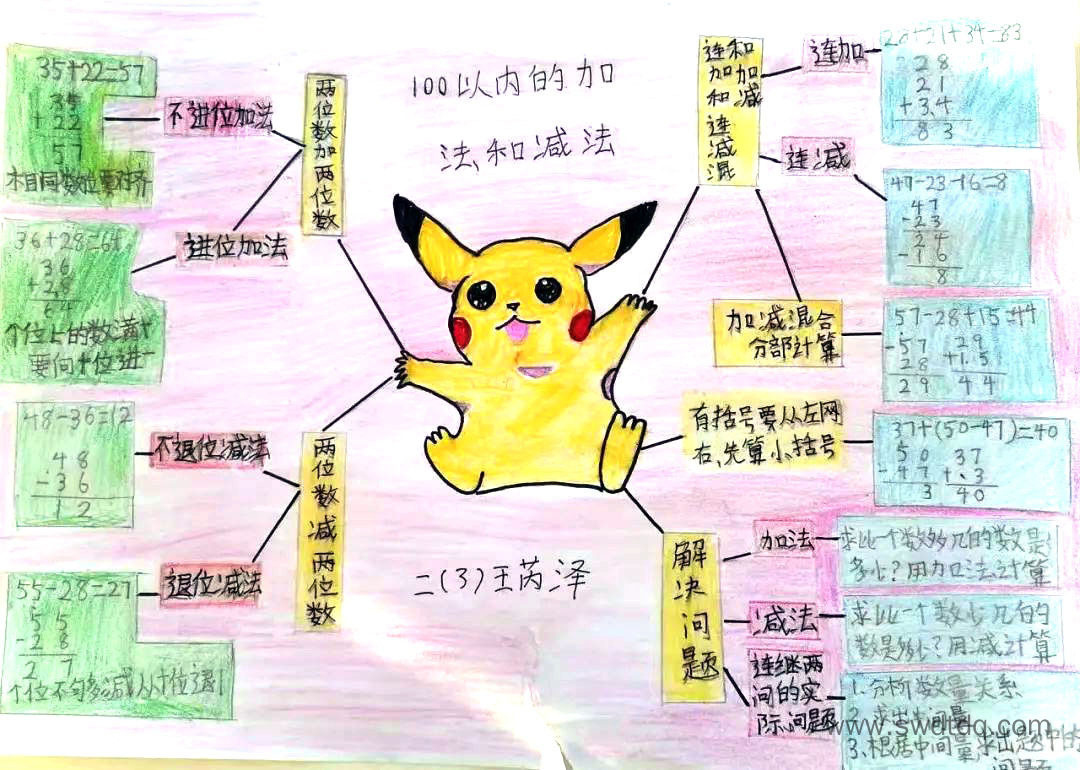 100以内的加
法和减法
二(3)王芮泽
两位数加两位数
不进位加法
35+22=57
35
+22
57
相同数位要对齐
进位加法
36+28=64
36
+28
64
个位上的数满十
要向十位进一
两位数减两位数
不退位减法
48-36=12
48
-36
12
退位减法
55-28=27
55
-28
27
个位不够减从十位退1
连加
和减
连减混
连加
28+21+34=83
28
21
+34
83
连减
47-23-16=8
47
-23
24
-16
8
加减混合
分部计算
57-28+15=44
-57 29
28 +15
29 44
有括号要从左网
右,先算小括号
37+(50-47)=40
50 37
-47 +3
3 40
解决问题
加法
求比一个数多几的数是
多少?用加法计算
减法
求比一个数少几的
数是多少?用减计算
连继两
问的实
际问题
1.分析数量关系
2.求出中间量
3.根居中间量求出题中的
问题
www.swdtdq.com